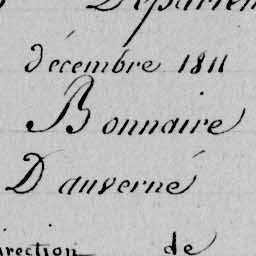 Départem
décembre 1811
Bonnaire
Dauverné
irection de